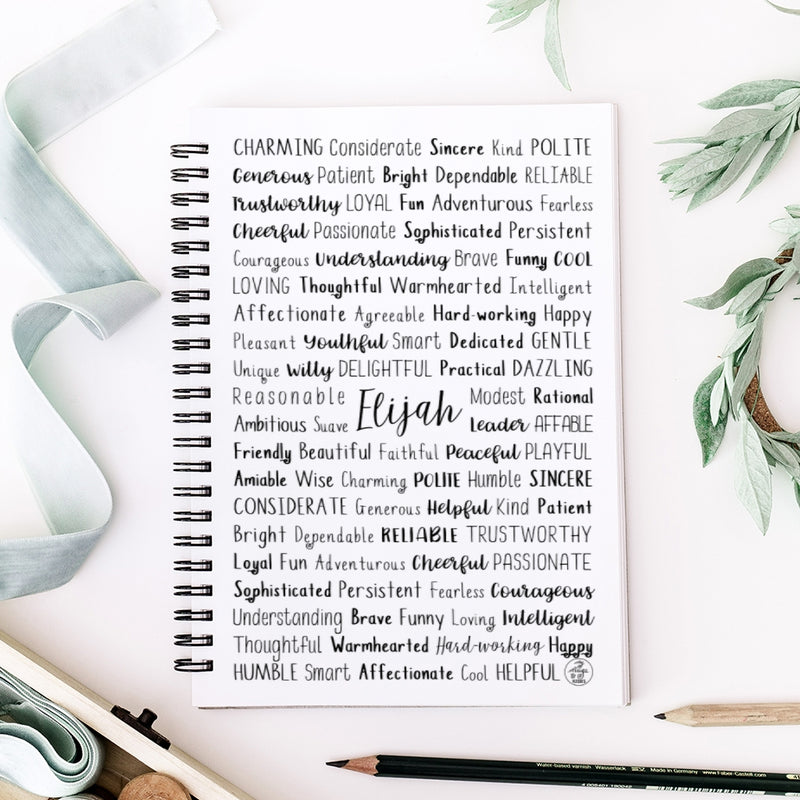 CHARMING Considerate Sincere Kind POLITE
Generous Patient Bright Dependable RELIABLE
Trustworthy LOYAL Fun Adventurous Fearless
Cheerful Passionate Sophisticated Persistent
Courageous Understanding Brave Funny COOL
LOVING Thoughtful Warmhearted Intelligent
Affectionate Agreeable Hard-working Happy
Pleasant Youthful Smart Dedicated GENTLE
Unique Witty DELIGHTFUL Practical DAZZLING
Reasonable Modest Rational
Elijah
Ambitious Suave Leader AFFABLE
Friendly Beautiful Faithful Peaceful PLAYFUL
Amiable Wise Charming POLITE Humble SINCERE
CONSIDERATE Generous Helpful Kind Patient
Bright Dependable RELIABLE TRUSTWORTHY
Loyal Fun Adventurous Cheerful PASSIONATE
Sophisticated Persistent Fearless Courageous
Understanding Brave Funny Loving Intelligent
Thoughtful Warmhearted Hard-working Happy
HUMBLE Smart Affectionate Cool HELPFUL
Water-based varnish Wasserlack Made in Germany www.Faber-Castell.com